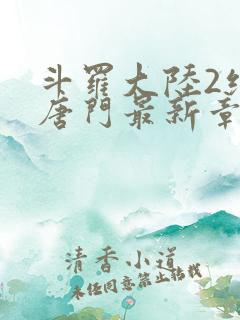 斗羅大陸2絕
唐門最新章
清香小道
未经同意禁止转载